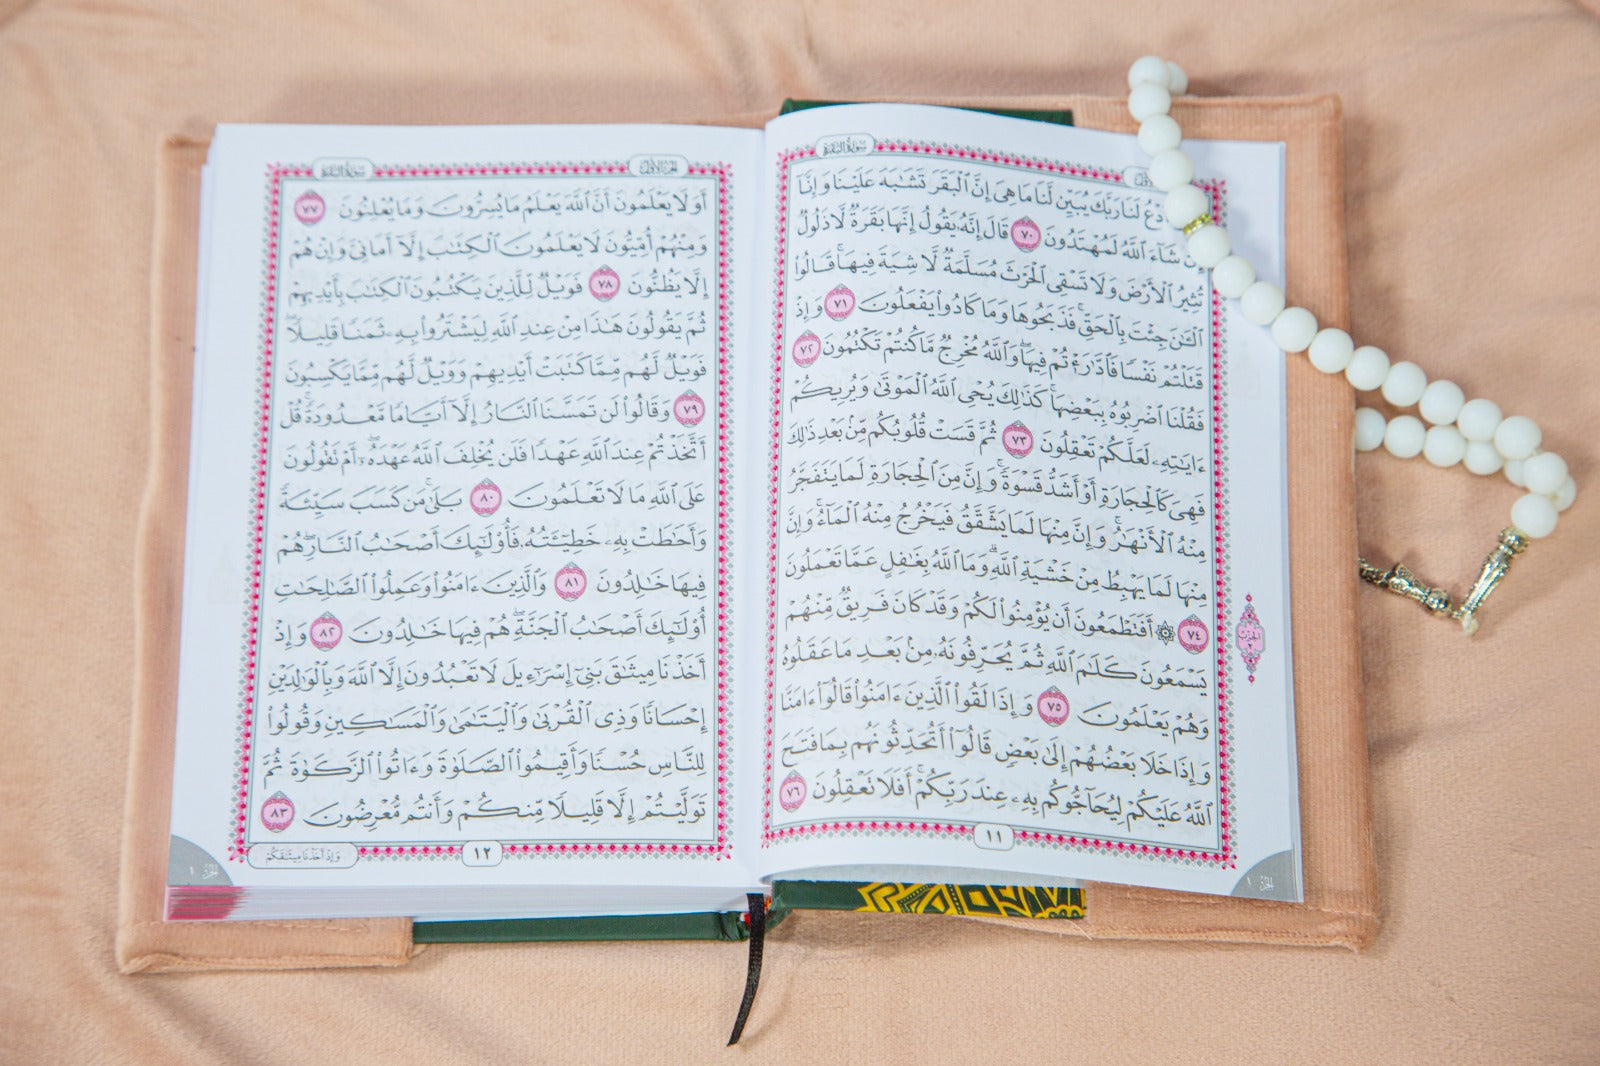 سورة البقرة
الجزء الأول
ٱدْعُ لَنَا رَبَّكَ يُبَيِّن لَّنَا مَا هِىَ إِنَّ ٱلْبَقَرَ تَشَٰبَهَ عَلَيْنَا وَإِنَّآ
إِن شَآءَ ٱللَّهُ لَمُهْتَدُونَ ٧٠ قَالَ إِنَّهُۥ يَقُولُ إِنَّهَا بَقَرَةٌ لَّا ذَلُولٌ
تُثِيرُ ٱلْأَرْضَ وَلَا تَسْقِى ٱلْحَرْثَ مُسَلَّمَةٌ لَّا شِيَةَ فِيهَا ۚ قَالُوا۟
ٱلْـَٰٔنَ جِئْتَ بِٱلْحَقِّ ۚ فَذَبَحُوهَا وَمَا كَادُوا۟ يَفْعَلُونَ ٧١ وَإِذْ
قَتَلْتُمْ نَفْسًا فَٱدَّٰرَْٰٔتُمْ فِيهَا ۖ وَٱللَّهُ مُخْرِجٌ مَّا كُنتُمْ تَكْتُمُونَ ٧٢
فَقُلْنَا ٱضْرِبُوهُ بِبَعْضِهَا ۚ كَذَٰلِكَ يُحْىِ ٱللَّهُ ٱلْمَوْتَىٰ وَيُرِيكُمْ
ءَايَٰتِهِۦ لَعَلَّكُمْ تَعْقِلُونَ ٧٣ ثُمَّ قَسَتْ قُلُوبُكُم مِّنۢ بَعْدِ ذَٰلِكَ
فَهِىَ كَٱلْحِجَارَةِ أَوْ أَشَدُّ قَسْوَةً ۚ وَإِنَّ مِنَ ٱلْحِجَارَةِ لَمَا يَتَفَجَّرُ
مِنْهُ ٱلْأَنْهَٰرُ ۚ وَإِنَّ مِنْهَا لَمَا يَشَّقَّقُ فَيَخْرُجُ مِنْهُ ٱلْمَآءُ ۚ وَإِنَّ
مِنْهَا لَمَا يَهْبِطُ مِنْ خَشْيَةِ ٱللَّهِ ۗ وَمَا ٱللَّهُ بِغَٰفِلٍ عَمَّا تَعْمَلُونَ
٧٤ ۞ أَفَتَطْمَعُونَ أَن يُؤْمِنُوا۟ لَكُمْ وَقَدْ كَانَ فَرِيقٌ مِّنْهُمْ
يَسْمَعُونَ كَلَٰمَ ٱللَّهِ ثُمَّ يُحَرِّفُونَهُۥ مِنۢ بَعْدِ مَا عَقَلُوهُ
وَهُمْ يَعْلَمُونَ ٧٥ وَإِذَا لَقُوا۟ ٱلَّذِينَ ءَامَنُوا۟ قَالُوٓا۟ ءَامَنَّا
وَإِذَا خَلَا بَعْضُهُمْ إِلَىٰ بَعْضٍ قَالُوٓا۟ أَتُحَدِّثُونَهُم بِمَا فَتَحَ
ٱللَّهُ عَلَيْكُمْ لِيُحَآجُّوكُم بِهِۦ عِندَ رَبِّكُمْ ۚ أَفَلَا تَعْقِلُونَ ٧٦
١١
الحزب
٢
الجزء ١
الجزء الأول
سورة البقرة
أَوَلَا يَعْلَمُونَ أَنَّ ٱللَّهَ يَعْلَمُ مَا يُسِرُّونَ وَمَا يُعْلِنُونَ ٧٧
وَمِنْهُمْ أُمِّيُّونَ لَا يَعْلَمُونَ ٱلْكِتَٰبَ إِلَّآ أَمَانِىَّ وَإِنْ هُمْ
إِلَّا يَظُنُّونَ ٧٨ فَوَيْلٌ لِّلَّذِينَ يَكْتُبُونَ ٱلْكِتَٰبَ بِأَيْدِيهِمْ
ثُمَّ يَقُولُونَ هَٰذَا مِنْ عِندِ ٱللَّهِ لِيَشْتَرُوا۟ بِهِۦ ثَمَنًا قَلِيلًا ۖ
فَوَيْلٌ لَّهُم مِّمَّا كَتَبَتْ أَيْدِيهِمْ وَوَيْلٌ لَّهُم مِّمَّا يَكْسِبُونَ
٧٩ وَقَالُوا۟ لَن تَمَسَّنَا ٱلنَّارُ إِلَّآ أَيَّامًا مَّعْدُودَةً ۚ قُلْ
أَتَّخَذْتُمْ عِندَ ٱللَّهِ عَهْدًا فَلَن يُخْلِفَ ٱللَّهُ عَهْدَهُۥٓ ۖ أَمْ تَقُولُونَ
عَلَى ٱللَّهِ مَا لَا تَعْلَمُونَ ٨٠ بَلَىٰ ۚ مَن كَسَبَ سَيِّئَةً
وَأَحَٰطَتْ بِهِۦ خَطِيٓـَٔتُهُۥ فَأُو۟لَٰٓئِكَ أَصْحَٰبُ ٱلنَّارِ ۖ هُمْ
فِيهَا خَٰلِدُونَ ٨١ وَٱلَّذِينَ ءَامَنُوا۟ وَعَمِلُوا۟ ٱلصَّٰلِحَٰتِ
أُو۟لَٰٓئِكَ أَصْحَٰبُ ٱلْجَنَّةِ ۖ هُمْ فِيهَا خَٰلِدُونَ ٨٢ وَإِذْ
أَخَذْنَا مِيثَٰقَ بَنِىٓ إِسْرَٰٓءِيلَ لَا تَعْبُدُونَ إِلَّا ٱللَّهَ وَبِٱلْوَٰلِدَيْنِ
إِحْسَانًا وَذِى ٱلْقُرْبَىٰ وَٱلْيَتَٰمَىٰ وَٱلْمَسَٰكِينِ وَقُولُوا۟
لِلنَّاسِ حُسْنًا وَأَقِيمُوا۟ ٱلصَّلَوٰةَ وَءَاتُوا۟ ٱلزَّكَوٰةَ ثُمَّ
تَوَلَّيْتُمْ إِلَّا قَلِيلًا مِّنكُمْ وَأَنتُم مُّعْرِضُونَ ٨٣
١٢
وَإِذْ أَخَذْنَا مِيثَٰقَكُمْ
الجزء ١